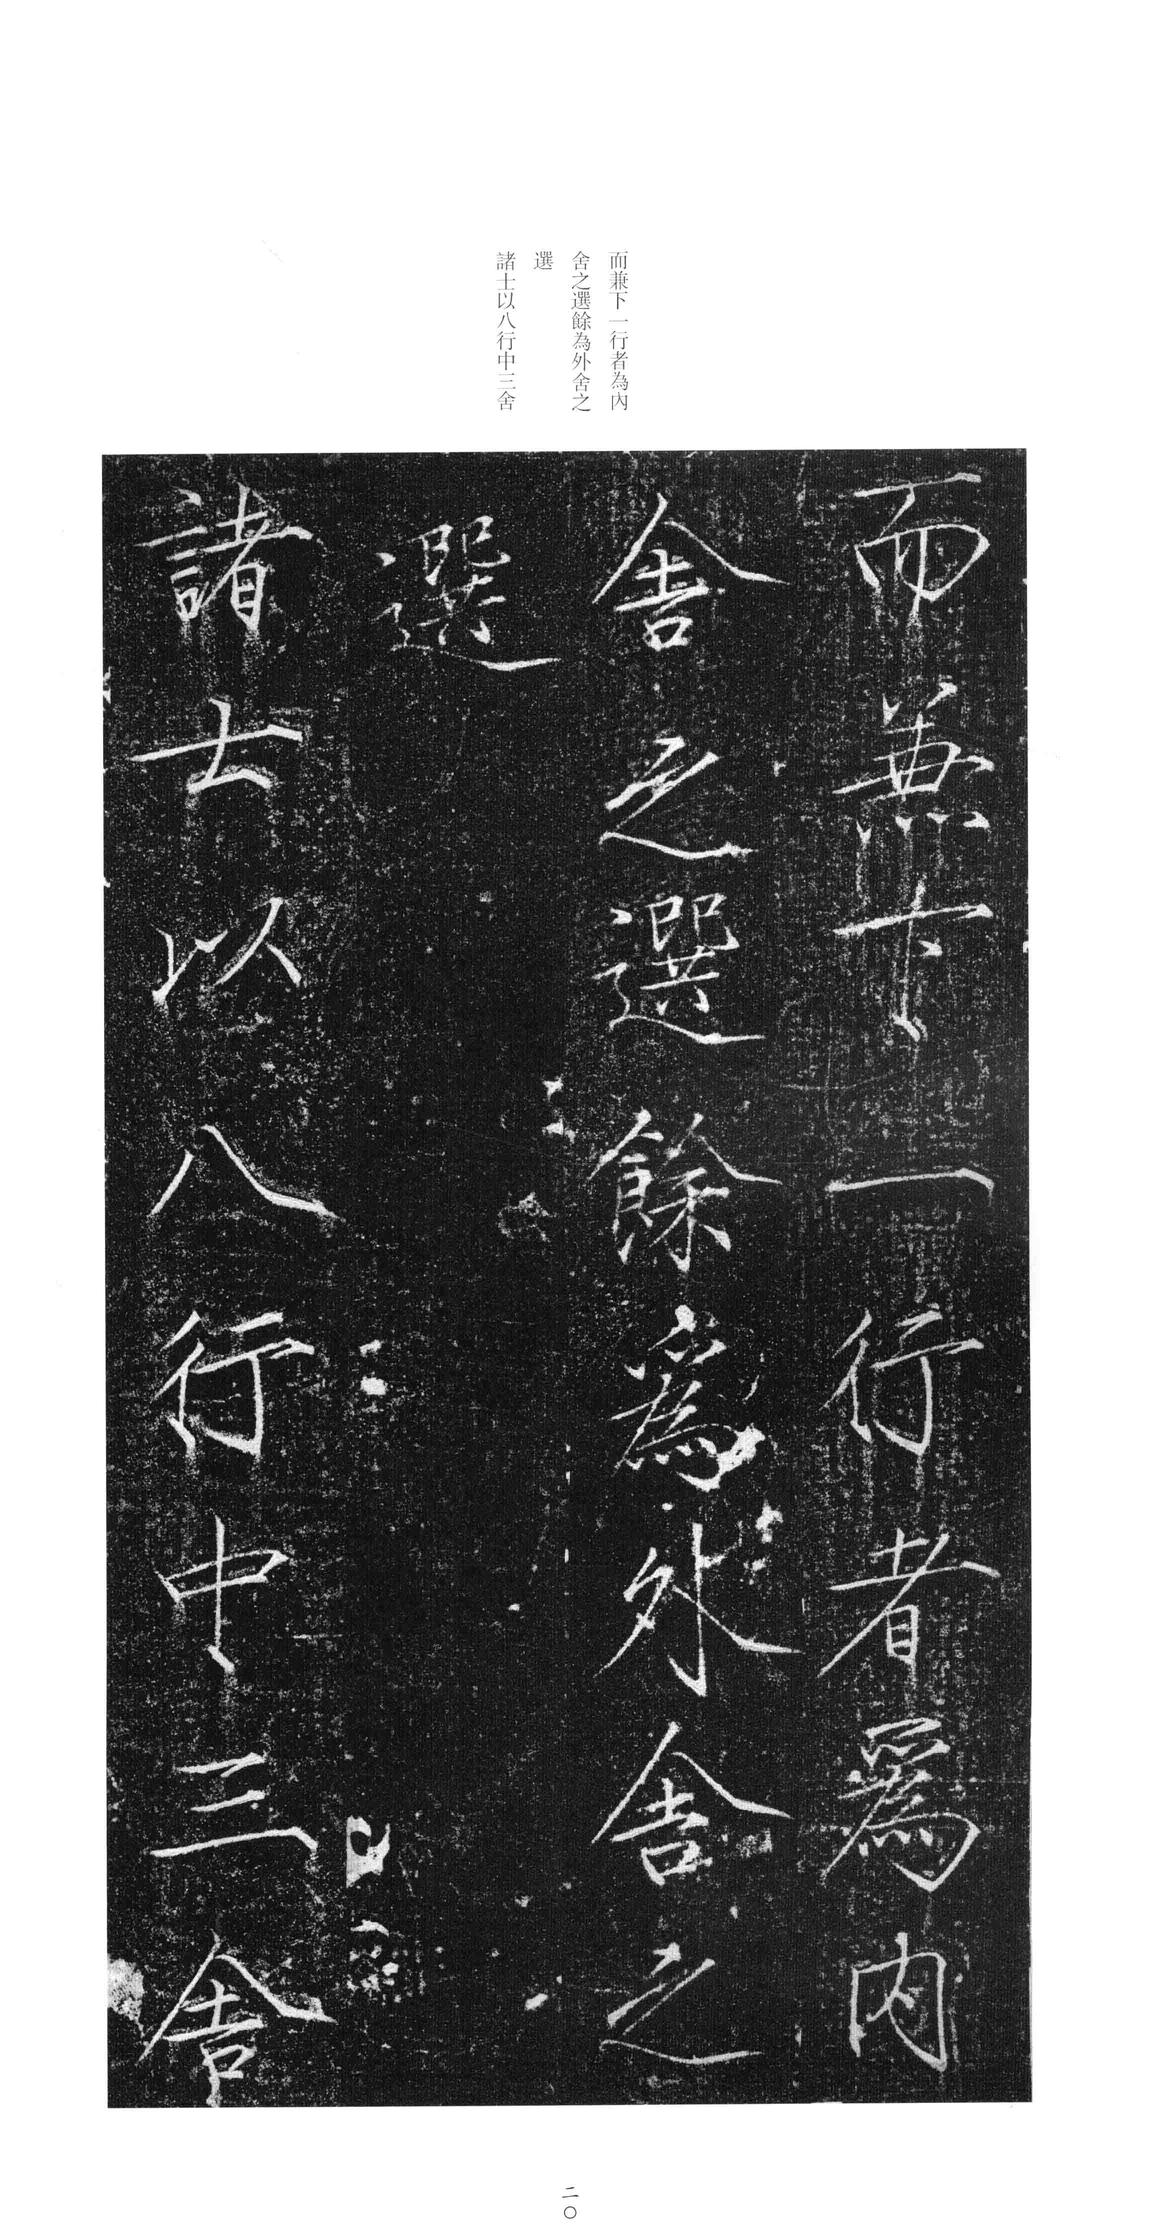 而兼下一行者為內
舍之選餘為外舍之
選
諸士以八行中三舍
而兼下一行者爲内
舍之選餘爲外舍之
選
諸士以八行中三舍
二〇